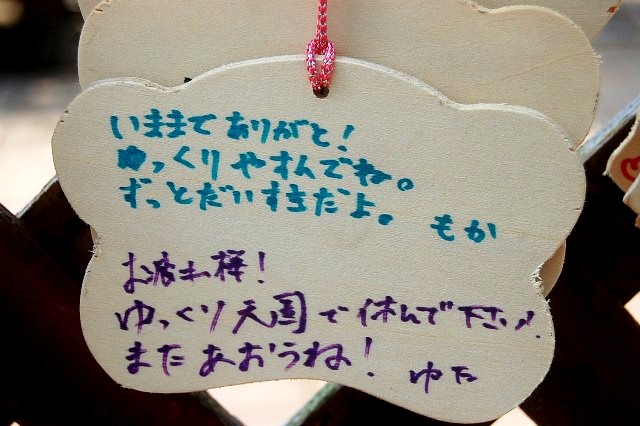 いままでありがと!
ゆっくりやすんでね。
ずっとだいすきだよ。 もか
お疲れ様!
ゆっくり天国で休んで下さい!
またあおうね! ゆた